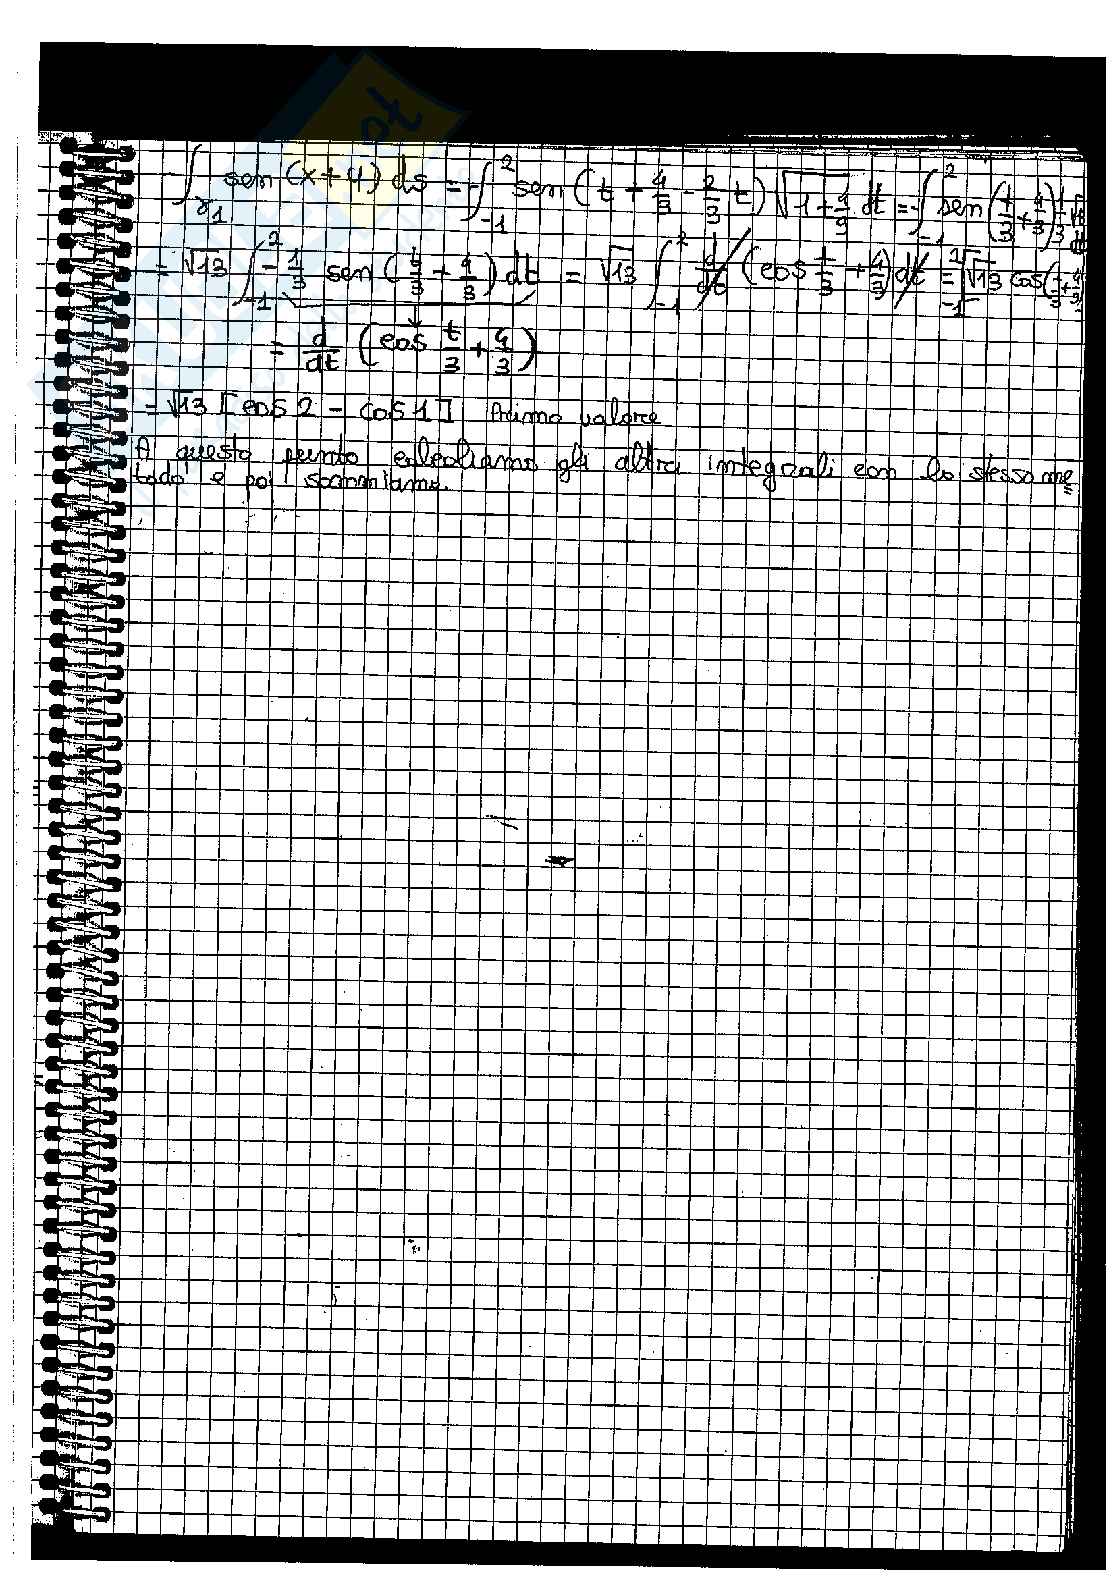 ∫_γ₁ sen (x+y) ds = -∫_{-1}^{2} sen (t + 4/3 - 2/3 t) √(1+4/9) dt = -∫_{-1}^{2} sen (t/3 + 4/3) 1/3 √13 dt
= √13 ∫_{-1}^{2} -1/3 sen (t/3 + 4/3) dt = √13 ∫_{-1}^{2} d/dt (cos t/3 + 4/3) dt = √13 cos (t/3 + 4/3)
= d/dt (cos t/3 + 4/3)
= √13 [cos 2 - cos 1] Primo valore
A questo punto calcoliamo gli altri integrali con lo stesso me=
todo e poi sommiamo.